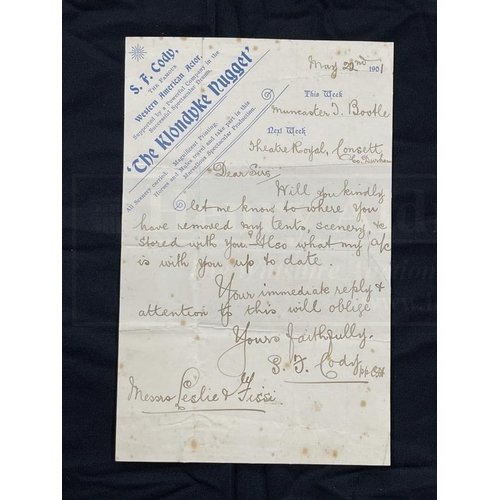 S. F. Cody,
THE FAMOUS
Western American Actor,
Supported by a Powerful Company in the
Successful Spectacular Drama,
'The Klondyke Nugget'
All Scenery carried. Magnificent Printing.
Horses and Mules travel and take part in this
Marvellous Spectacular Production.
May 22nd 1901
This Week
Muncaster T. Bootle
Next Week
Theatre Royal, Consett
Co. Durham
Dear Sirs
Will you kindly
let me know to where you
have removed my tents, scenery, &c
stored with you. Also what my a/c
is with you up to date.
Your immediate reply &
attention to this will oblige
Yours faithfully.
S. F. Cody
Messrs Leslie & Tissi.